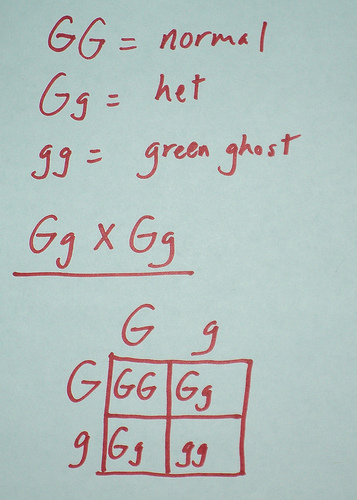 GG = normal
Gg = het
gg = green ghost
Gg X Gg
G g
G GG Gg
g Gg gg